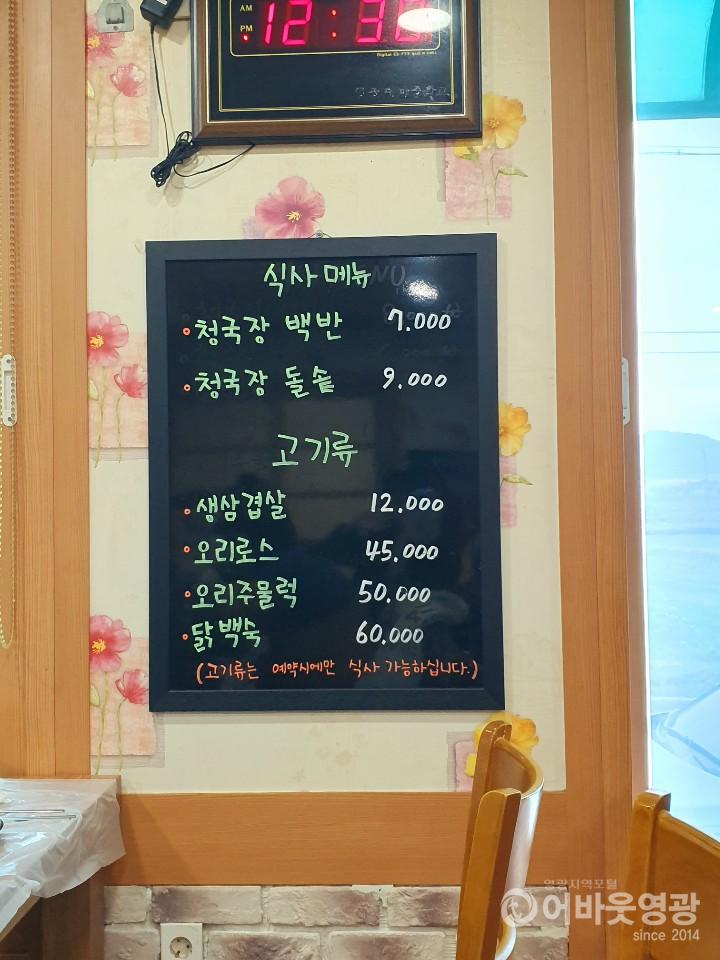 AM
PM
12:30
식사메뉴
• 청국장 백반 7.000
• 청국장 돌솥 9.000
고기류
• 생삼겹살 12.000
• 오리로스 45.000
• 오리주물럭 50.000
• 닭백숙 60.000
(고기류는 예약시에만 식사 가능하십니다.)
영광지역포털
어바웃영광
since 2014